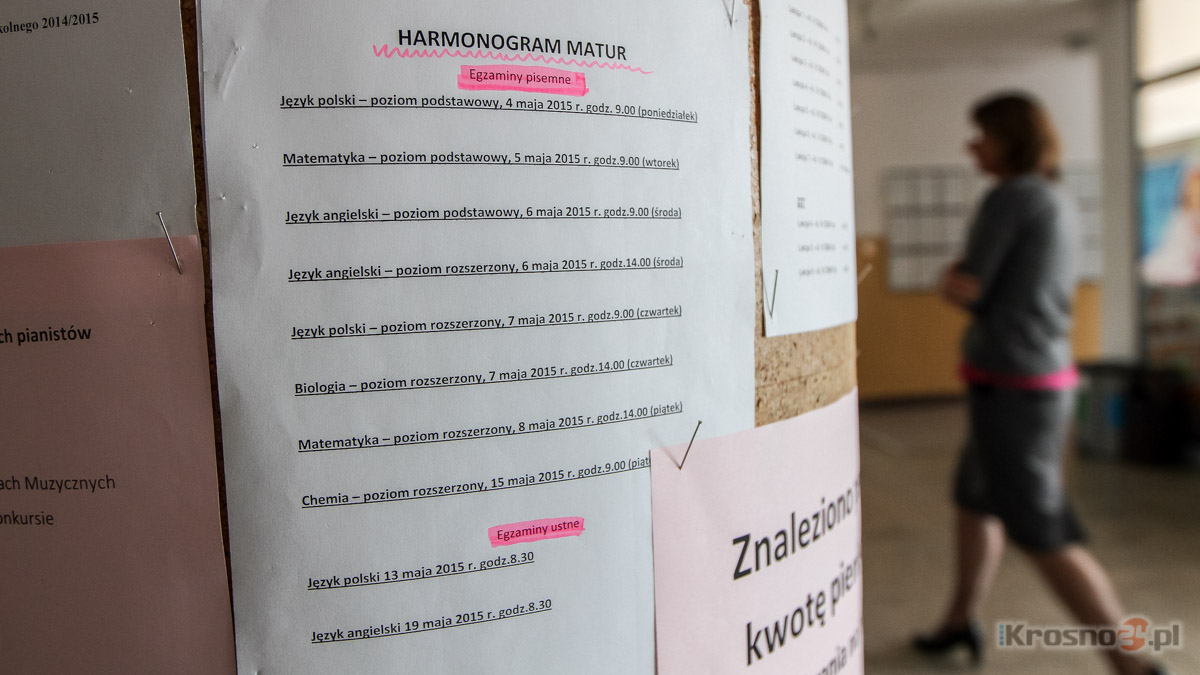 kolnego 2014/2015
HARMONOGRAM MATUR
Egzaminy pisemne
Język polski – poziom podstawowy, 4 maja 2015 r. godz. 9.00 (poniedziałek)
Matematyka – poziom podstawowy, 5 maja 2015 r. godz.9.00 (wtorek)
Język angielski – poziom podstawowy, 6 maja 2015 r. godz.9.00 (środa)
Język angielski – poziom rozszerzony, 6 maja 2015 r. godz.14.00 (środa)
Język polski – poziom rozszerzony, 7 maja 2015 r. godz.9.00 (czwartek)
Biologia – poziom rozszerzony, 7 maja 2015 r. godz.14.00 (czwartek)
Matematyka – poziom rozszerzony, 8 maja 2015 r. godz.14.00 (piątek)
Chemia – poziom rozszerzony, 15 maja 2015 r. godz.9.00 (piąt
Egzaminy ustne
Język polski 13 maja 2015 r. godz.8.30
Język angielski 19 maja 2015 r. godz.8.30
ch pianistów
ach Muzycznych
onkursie
Znaleziono
kwotę pien
Krosno24.pl